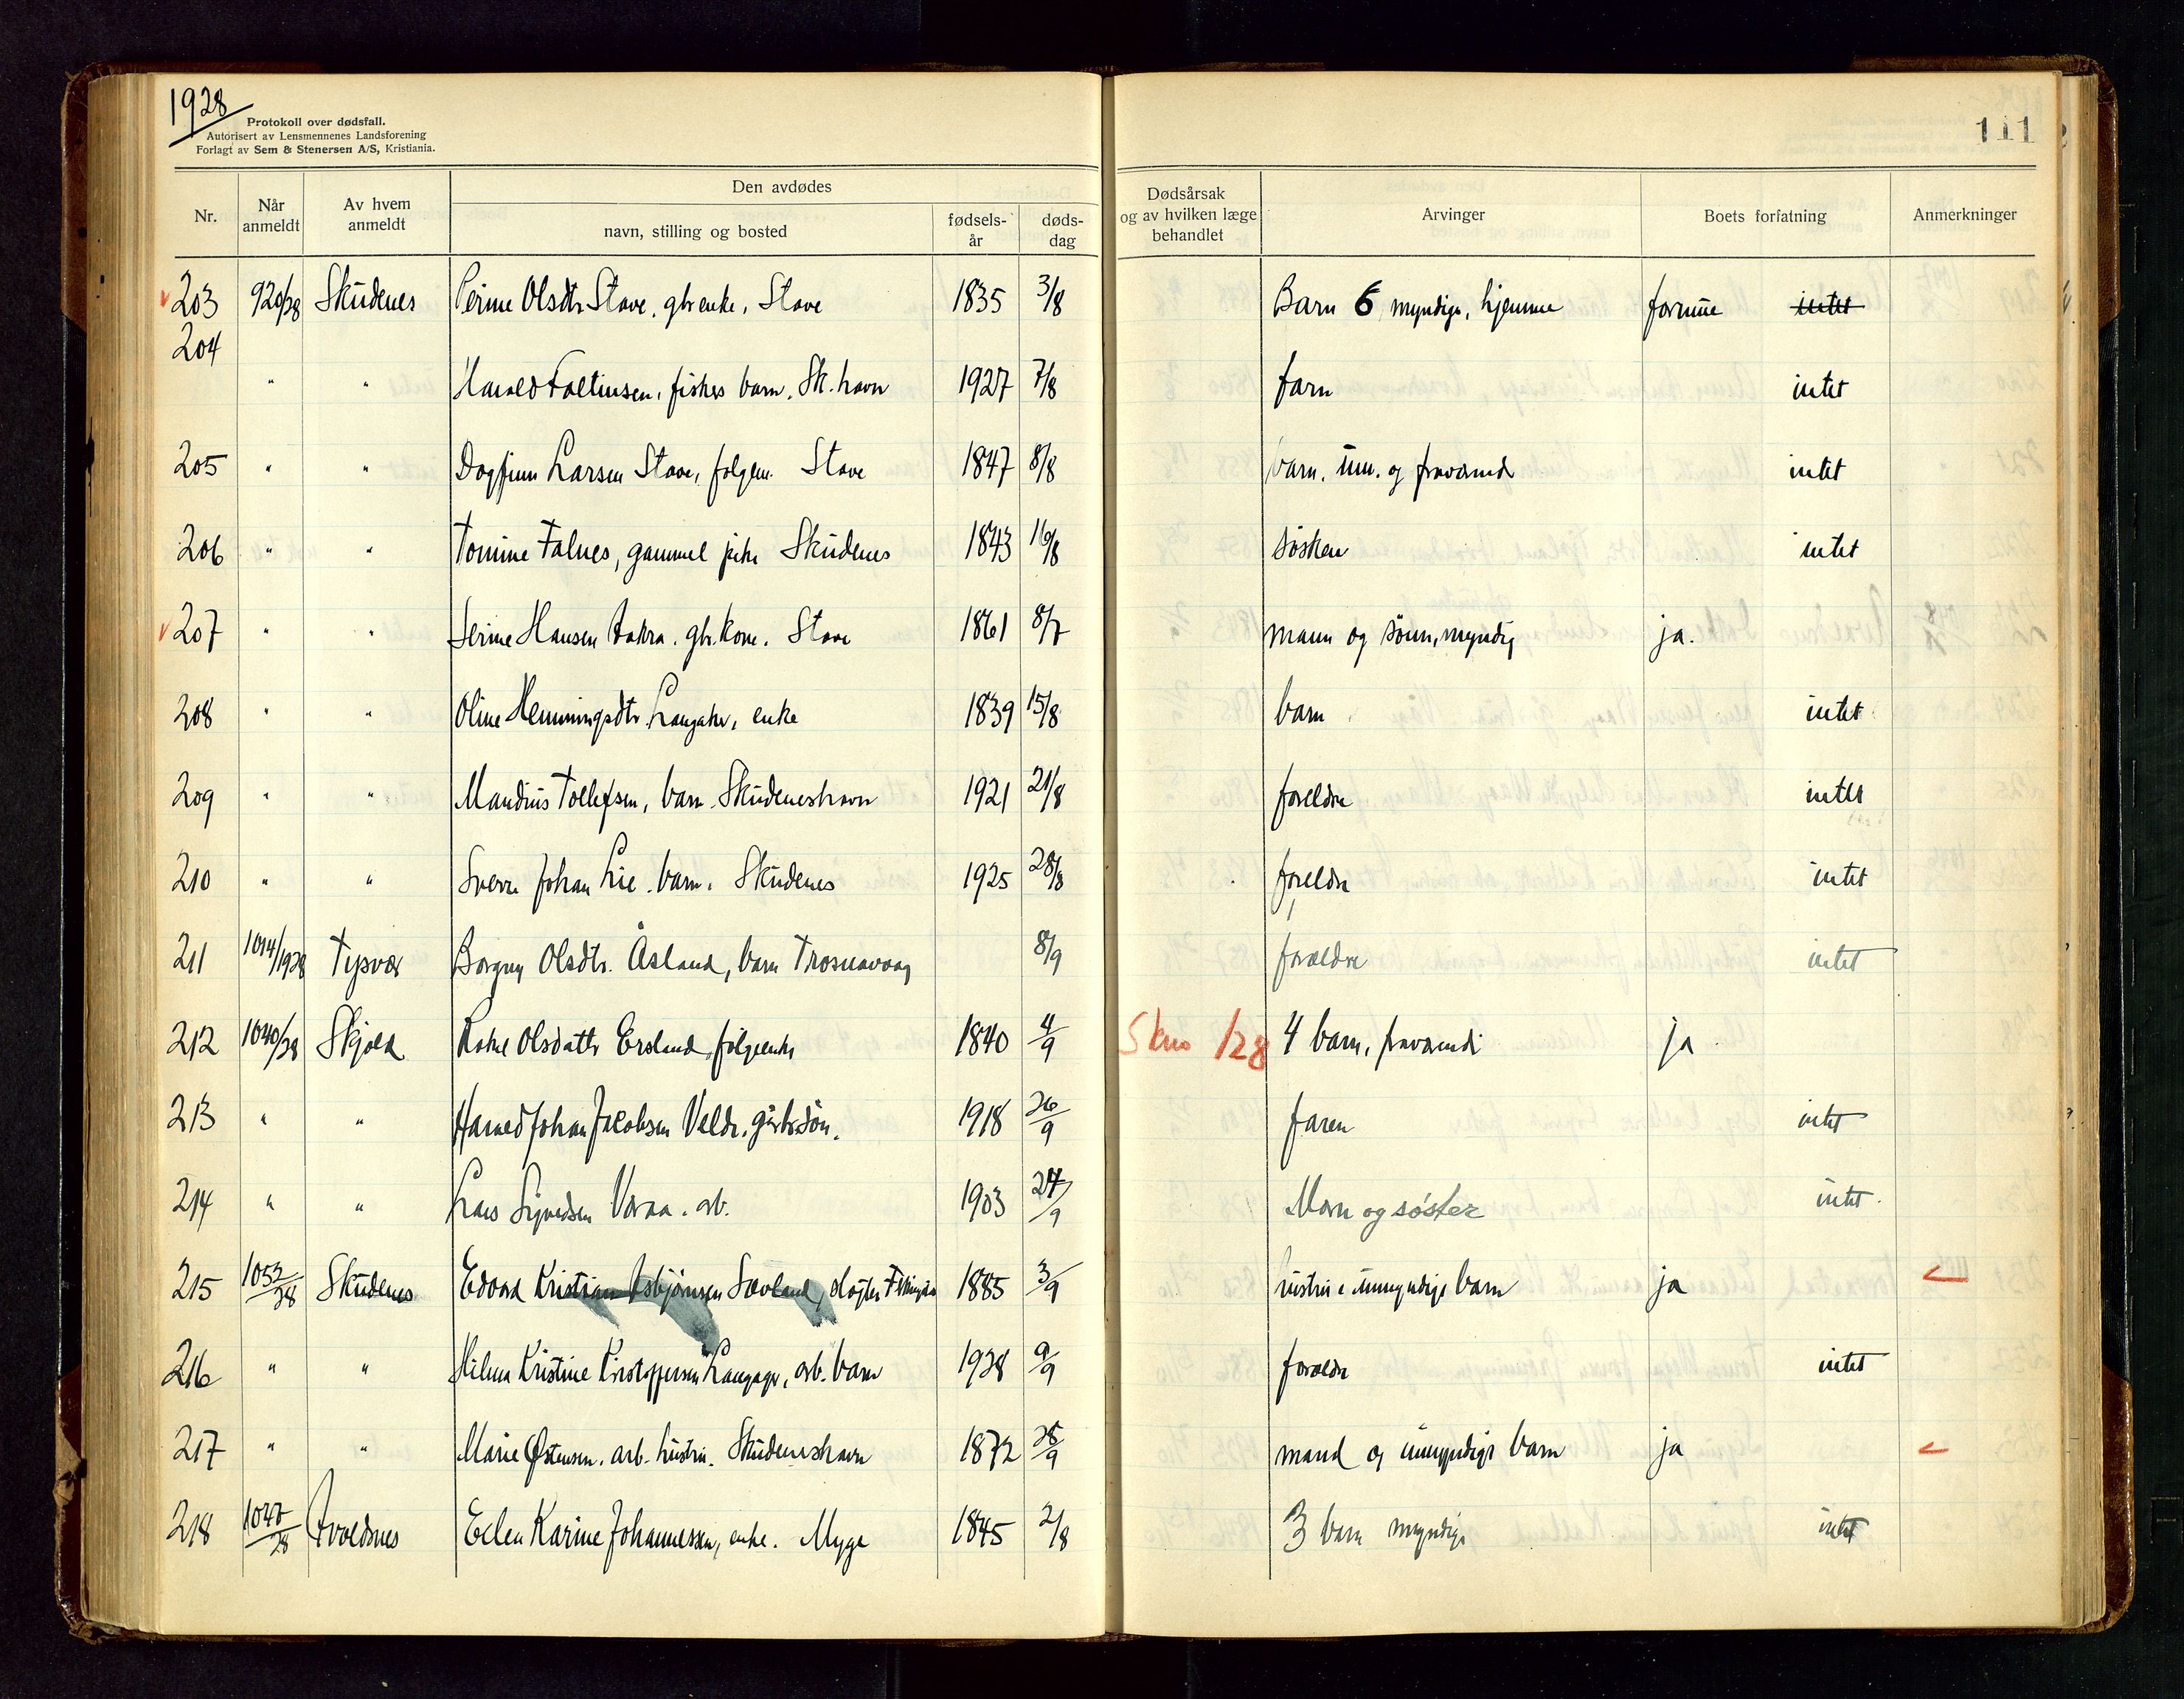 1928
Protokoll over dødsfall.
Autorisert av Lensmennenes Landsforening
Forlagt av Sem & Stenersen A/S, Kristiania.
111
Nr. Når anmeldt Av hvem anmeldt Den avdødes navn, stilling og bosted fødsels-år døds-dag Dødsårsak og av hvilken læge behandlet Arvinger Boets forfatning Anmerkninger
203 920/28 Skudenes Serine Olsdtr Stave, gbr enke, Stave 1835 3/8 Barn 6 myndige, hjemme formue intet
204 " " Harald Faltinsen, fiskers barn, Sk.havn 1927 7/8 farn intet
205 " " Dagfinn Larsen Stave, folgem. Stave 1847 8/8 barn, um. og fraværend intet
206 " " Tomine Falnes, gammel pike Skudenes 1843 16/8 søsken intet
207 " " Serine Hansen Aakra, gbr. kone, Stave 1861 8/7 mann og sønn, myndig ja.
208 " " Oline Hemmingsdtr Langaker, enke 1839 15/8 barn intet
209 " " Mandius Tollefsen, barn. Skudeneshavn 1921 21/8 foreldre intet
210 " " Sverre Johan Lie, barn, Skudenes 1925 28/8 foreldre intet
211 1014/1928 Tysvær Borgny Olsdtr. Åsland, barn Trosnavaag 8/9 forældre intet
212 1040/28 Skjold Olsdattr Ersland, folgeenke 1840 4/9 /28 4 barn, fraværende ja
213 " " Harald Johan Jacobsen Velde, gårdbr.søn. 1918 26/9 faren intet
214 " " Lars Sigvedsen arb. 1903 24/9 Morn og søster intet
215 1052/28 Skudenes Edvard Kristian Asbjørnsen Sævland, slagter 1885 3/9 hustru & umyndige barn ja
216 " " Hilma Kristine Kristoffersen Langager, arb. barn 1928 9/9 forældre intet
217 " " Marie Østensen, arb. hustru. Skudeneshavn 1872 28/9 mand og umyndige barn ja
218 1047/28 Avaldsnes Ellen Karine Johannessen, enke. Myge 1845 2/8 3 barn myndige intet